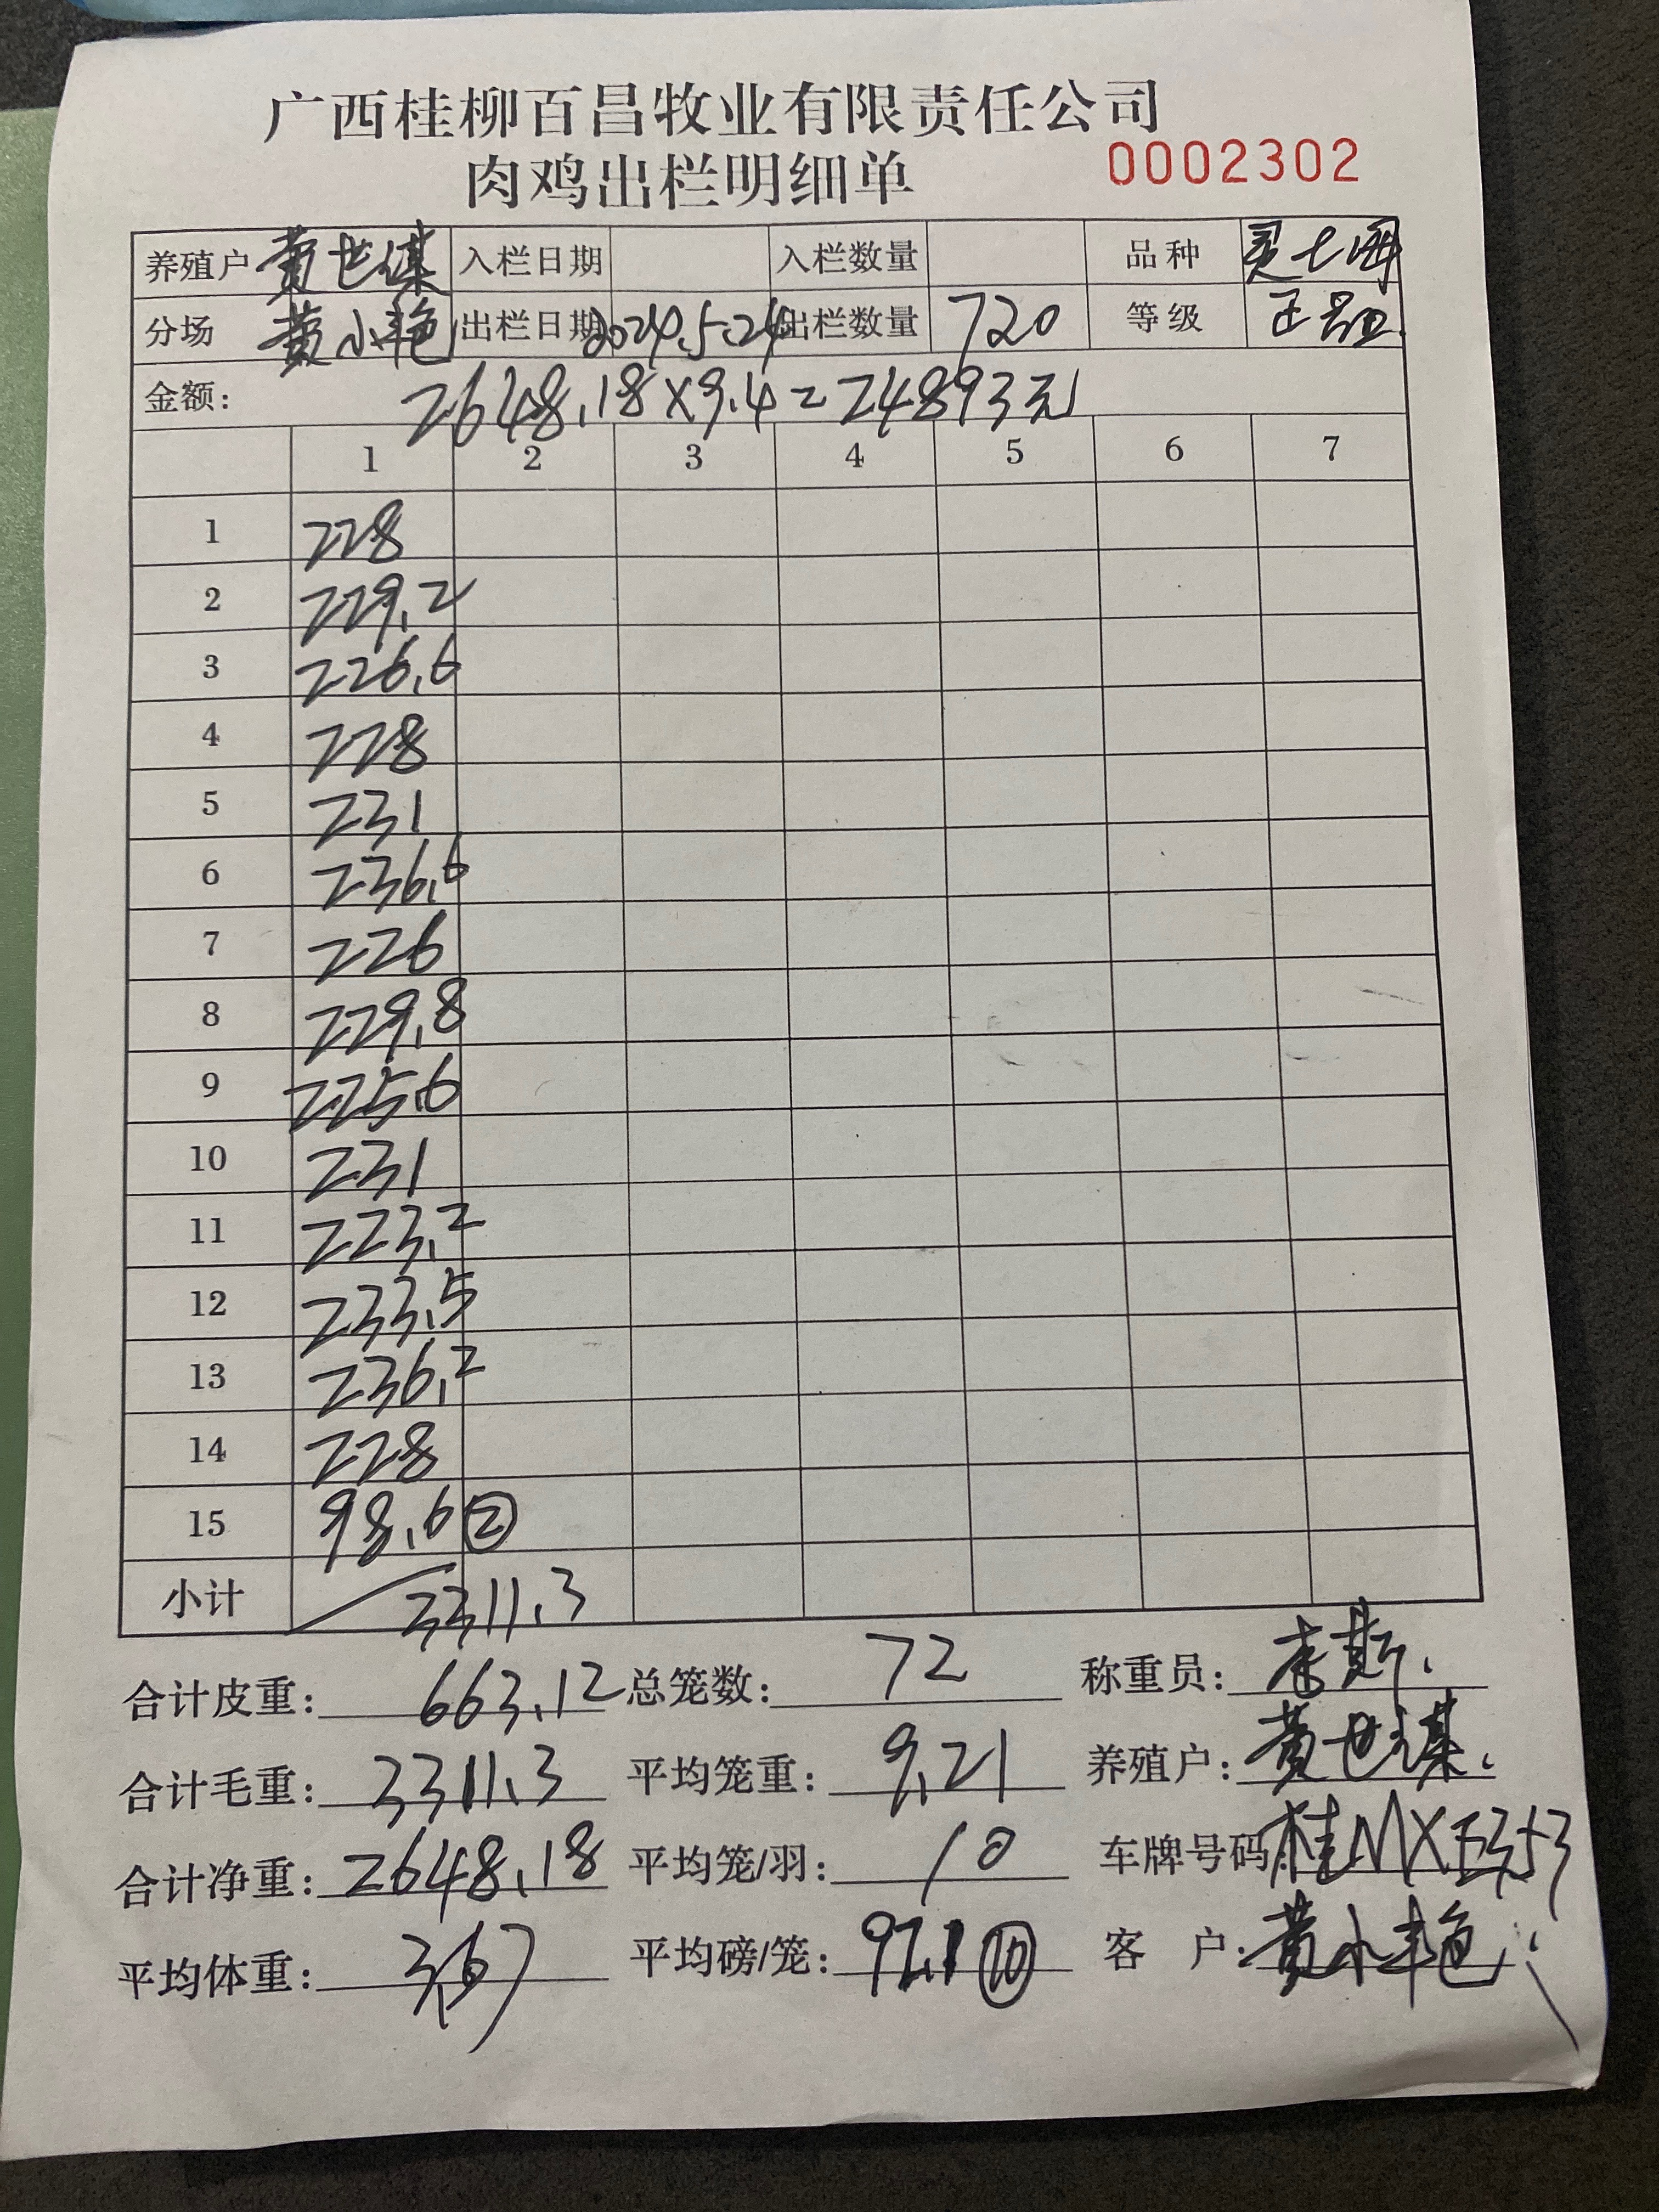 广西桂柳百昌牧业有限责任公司
肉鸡出栏明细单 0002302
养殖户 黄世谋 入栏日期 入栏数量 品种
分场 黄小艳 出栏日期 2024.5.24 出栏数量 720 等级 正品
金额: 2648.18×9.4=24893元
1 2 3 4 5 6 7
1 228
2 229.2
3 226.6
4 228
5 231
6 236.6
7 226
8 229.8
9 225.6
10 231
11 223.2
12 233.5
13 236.2
14 228
15 98.6 ②
小计 3311.3
合计皮重: 663.12 总笼数: 72 称重员:
合计毛重: 3311.3 平均笼重: 9.21 养殖户: 黄世谋
合计净重: 2648.18 平均笼/羽: 10 车牌号码: 桂MXE353
平均体重: 3.67 平均磅/笼: 92.1 ⑩ 客 户: 黄小艳